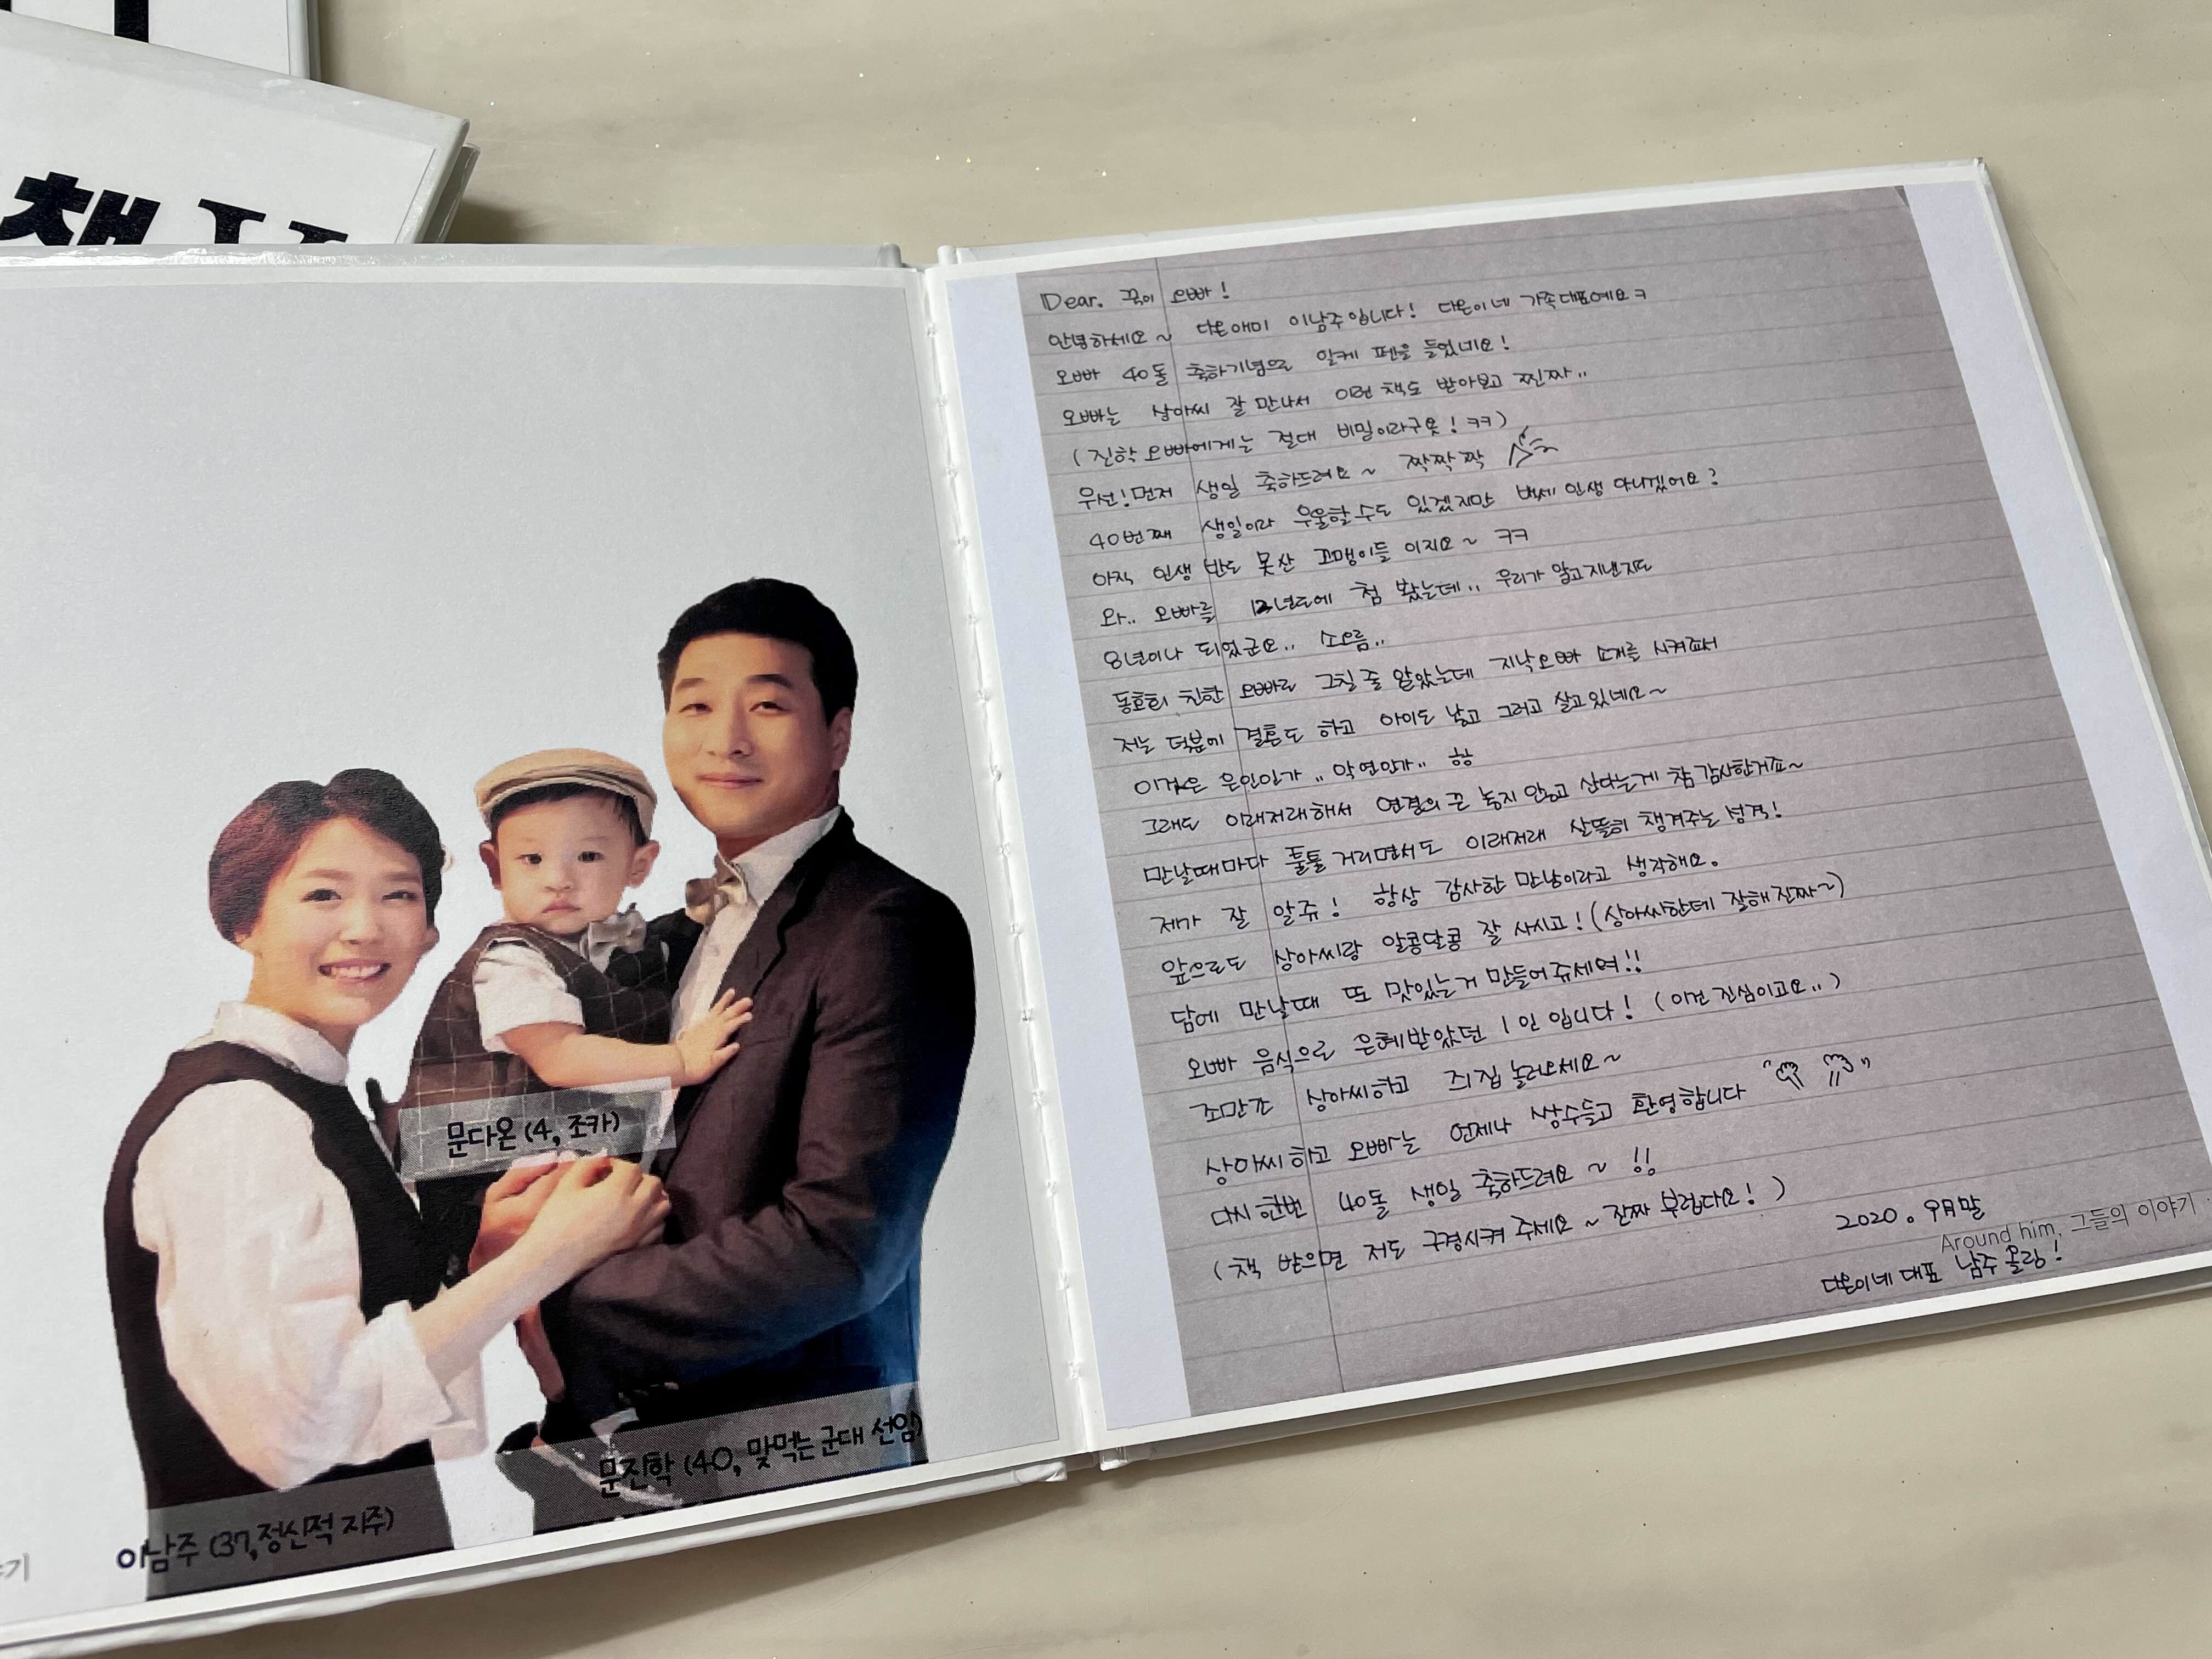 책
문다온 (4, 조카)
문진학 (40, 맞먹는 군대 선임)
이남주 (37, 정신적 지주)
Dear. 꾹이 오빠!
안녕하세요~ 다온애미 이남주입니다! 다온이네 가족대표예요ㅋ
오빠 40돌 축하기념으로 일케 펜을 들었네요!
오빠는 상아씨 잘 만나서 이런 책도 받아보고 찐짜..
(진학오빠에게는 절대 비밀이라구욧! ㅋㅋ)
우선! 먼저 생일 축하드려요~ 짝짝짝
40번째 생일이라 우울할 수도 있겠지만 백세 인생 아니겠어요?
아직 인생 반도 못산 꼬맹이들 이지요~ ㅋㅋ
와.. 오빠를 12년도에 첨 봤는데.. 우리가 알고지낸지도
8년이나 되었군요.. 소오름..
동호회 친한 오빠로 그칠 줄 알았는데 지낙오빠 소개를 시켜줘서
저는 덕분에 결혼도 하고 아이도 낳고 그러고 살고있네요~
이것은 은인인가.. 악연인가.. 핳
그래도 이래저래해서 연결의 끈 놓지 안놓고 산다는게 참 감사한거죠~
만날때마다 툴툴거리면서도 이래저래 살뜰히 챙겨주는 성격!
제가 잘 알쥬! 항상 감사한 만남이라고 생각해요.
앞으로도 상아씨랑 알콩달콩 잘 사시고! (상아씨한테 잘해 진짜~)
담에 만날때 또 맛있는거 만들어쥬세여!!
오빠 음식으로 은혜받았던 1인 입니다! (이건 진심이고요..)
조만간 상아씨하고 저희집 놀러오세요~
상아씨하고 오빠는 언제나 쌍수들고 환영합니다
다시한번 40돌 생일 축하드려요~!!
(책 받으면 저도 구경시켜 주세요~ 진짜 부럽다요!)
2020. 9月말
Around him, 그들의 이야기
다온이네 대표 남주 올림!